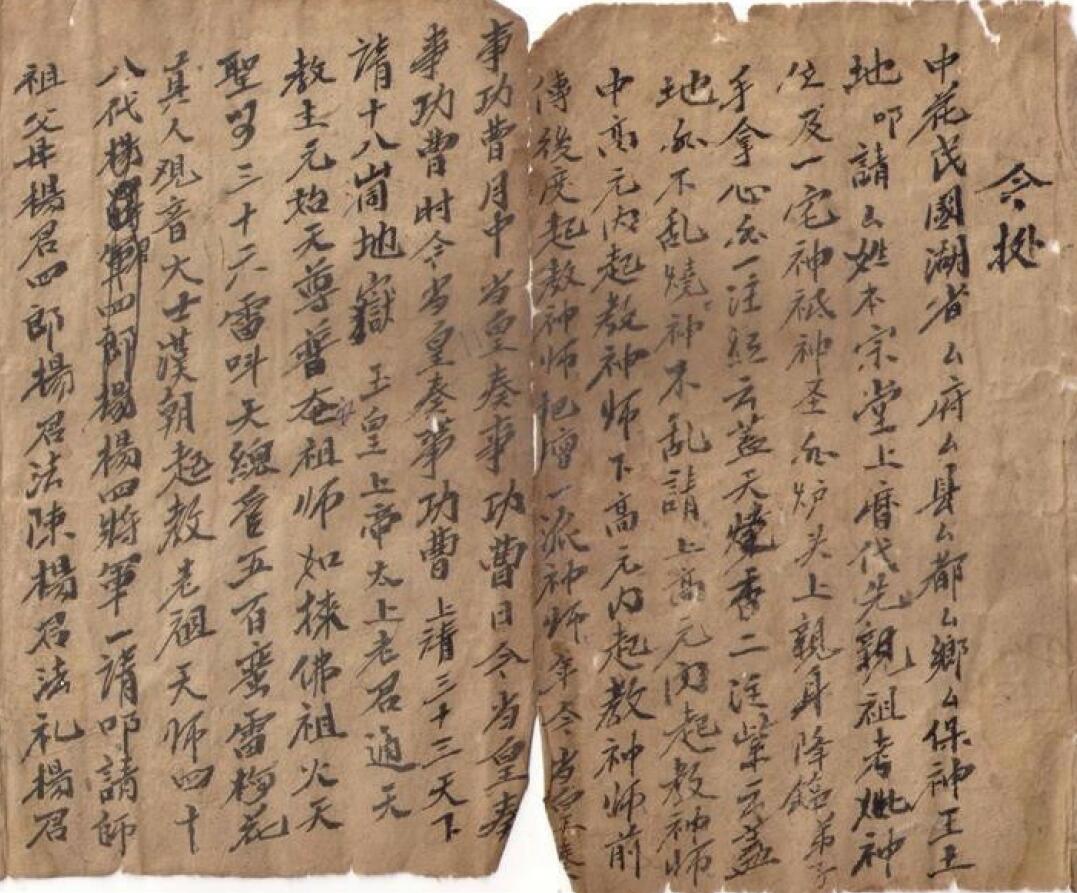 今据
中花民國湖省厶府厶县厶都厶鄉厶保神王土
地叩請厶姓本宗堂上曆代先親祖考妣神
位及一宅神祇神圣 炉头上親身降 弟子
手拿心 一注红云盖天燒香二注紫云盖
地 不乱燒神不乱請上高元内起教神师
中高元内起教神师下高元内起教神师前
傳後度起教神师 壇一派神师年令当皇奏
事功曹月中当皇奏事功曹日令当皇奏
事功曹时令当皇奏事功曹上請三十三天下
請十八崗地嶽玉皇上帝太上老君通天
教主元始天尊普奄祖师如 佛祖火天
聖 三十六雷叫天總管五百蛮雷梅花
真人观音大士漢朝起教老祖天师四十
八代 楊四將軍一請叩請師
祖父母楊君四郎楊君法陳楊君法礼楊君